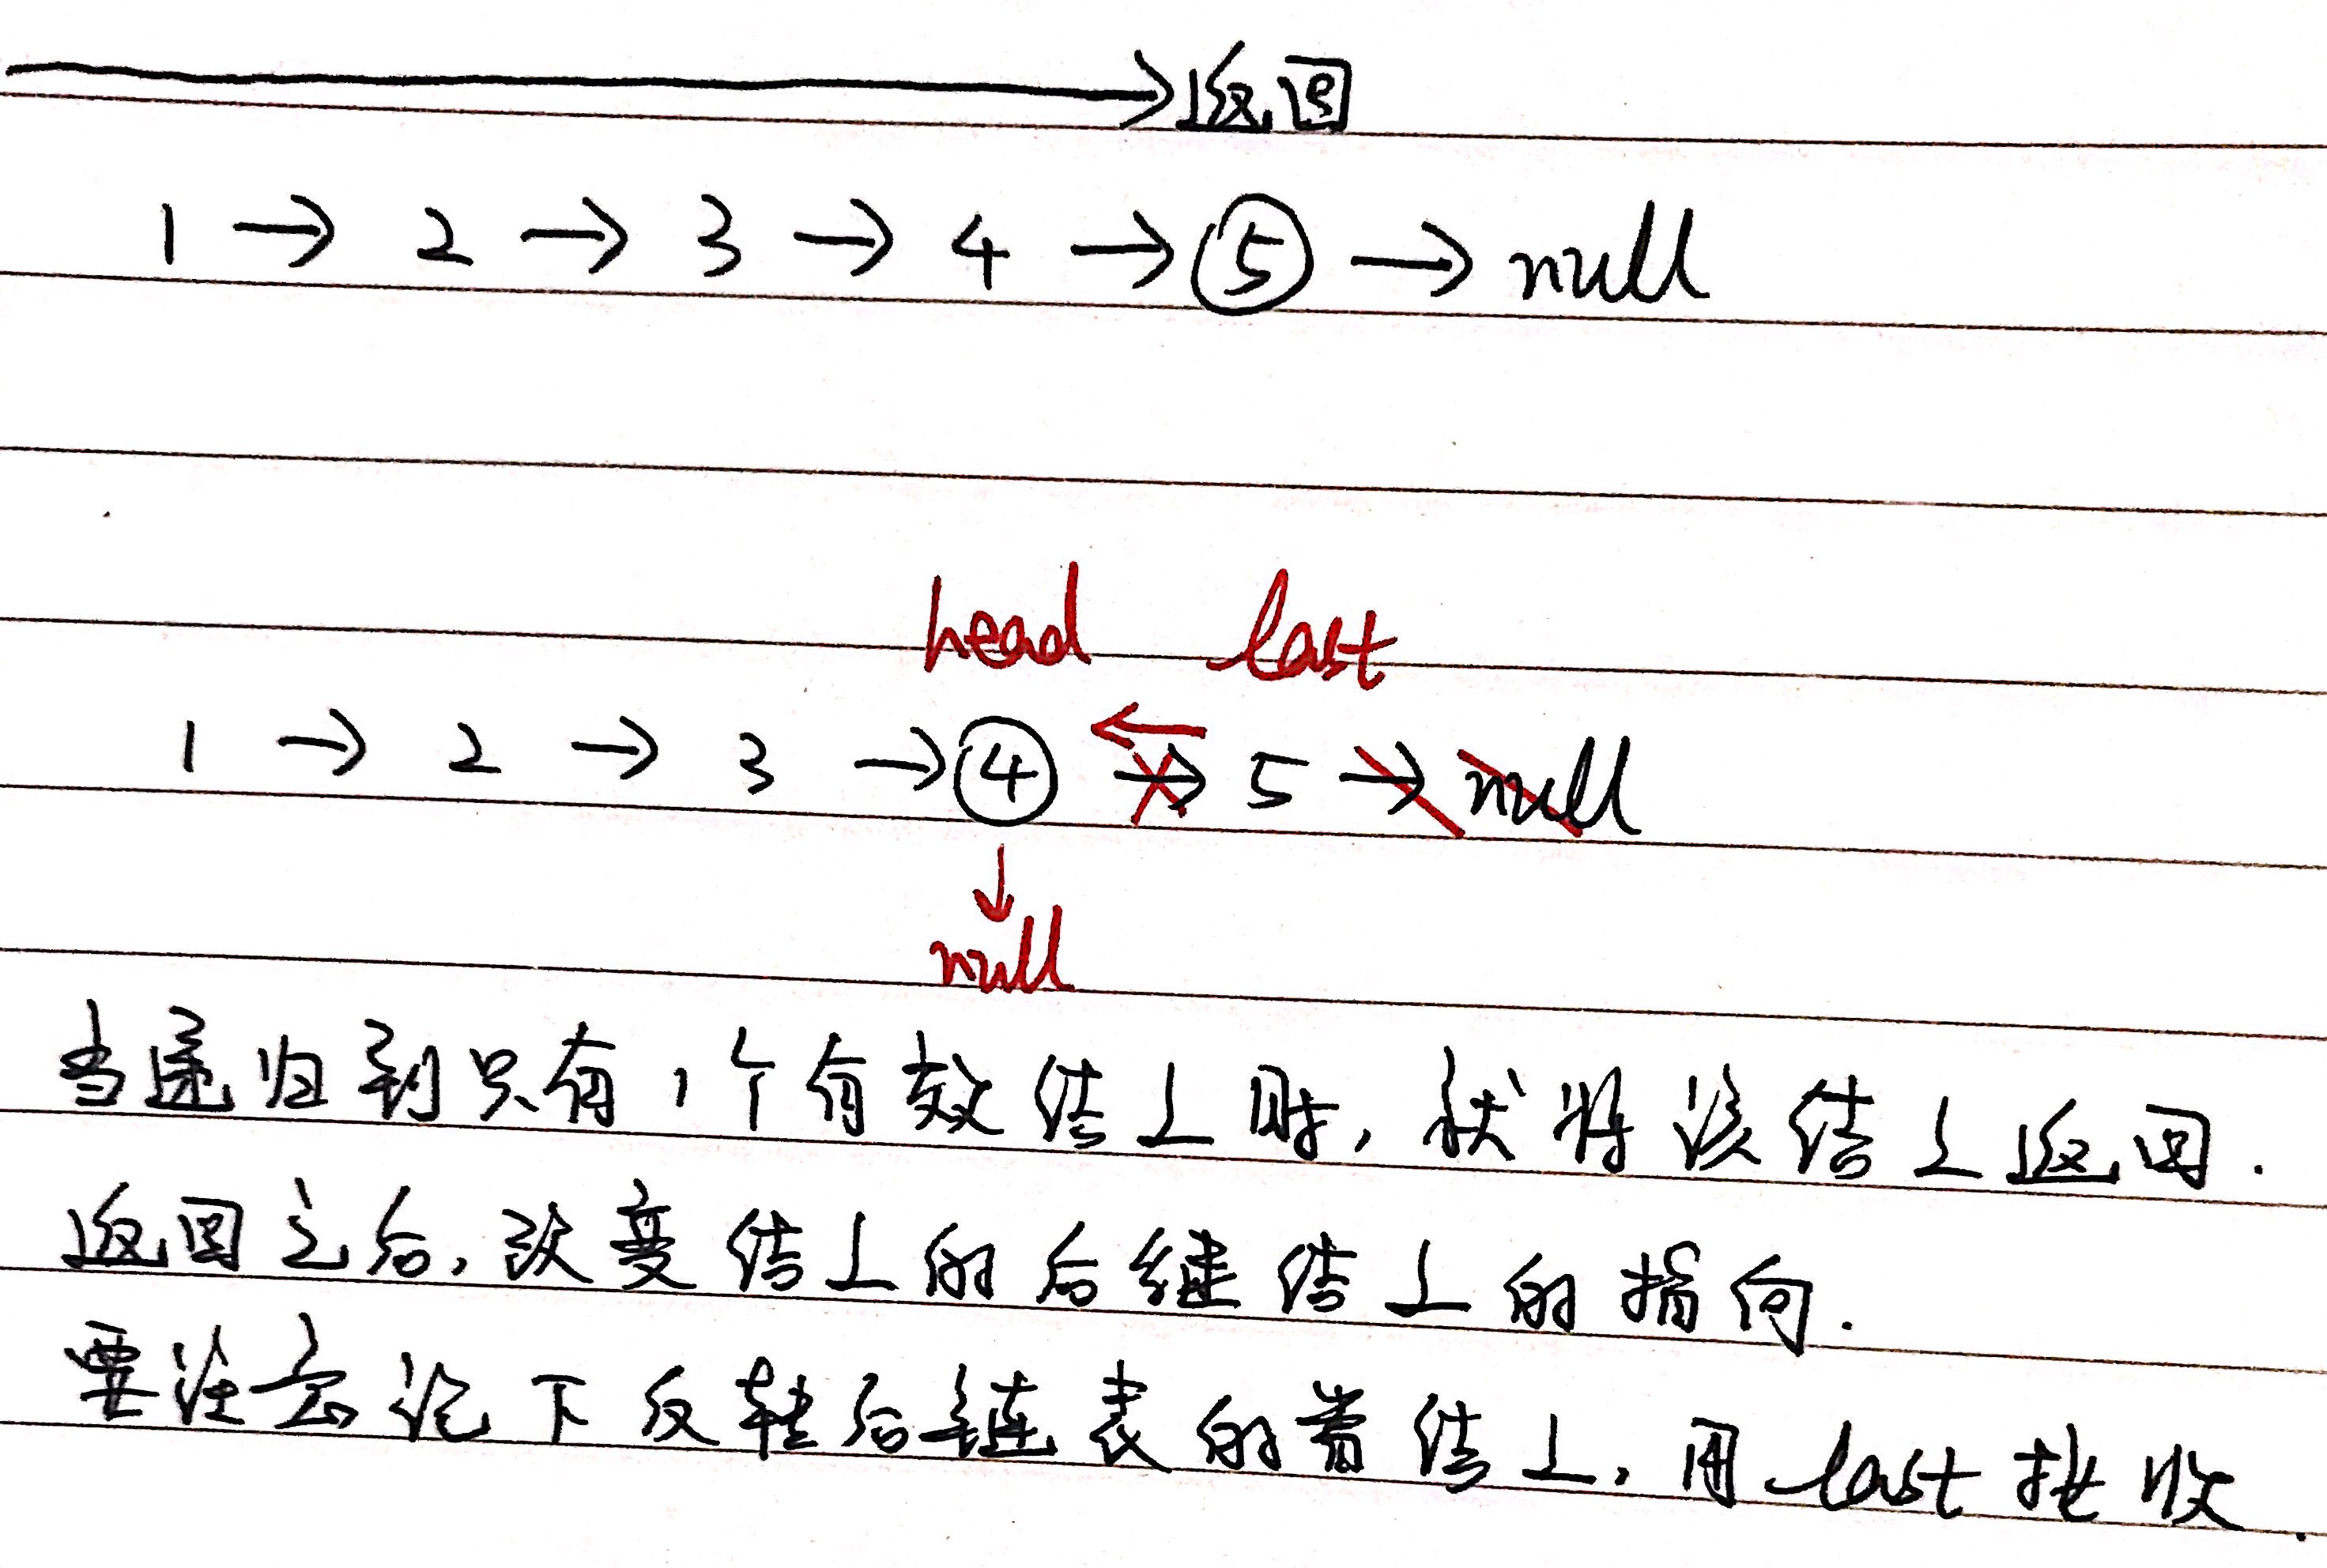 返回
1 → 2 → 3 → 4 → ⑤ → null
head last
1 → 2 → 3 → ④ ← → 5 → null
↓
null
当递归到只有1个有效结点时,就将该结点返回.
返回之后,改变结点的后继结点的指向.
要注意记下反转后链表的首结点,用last接收.